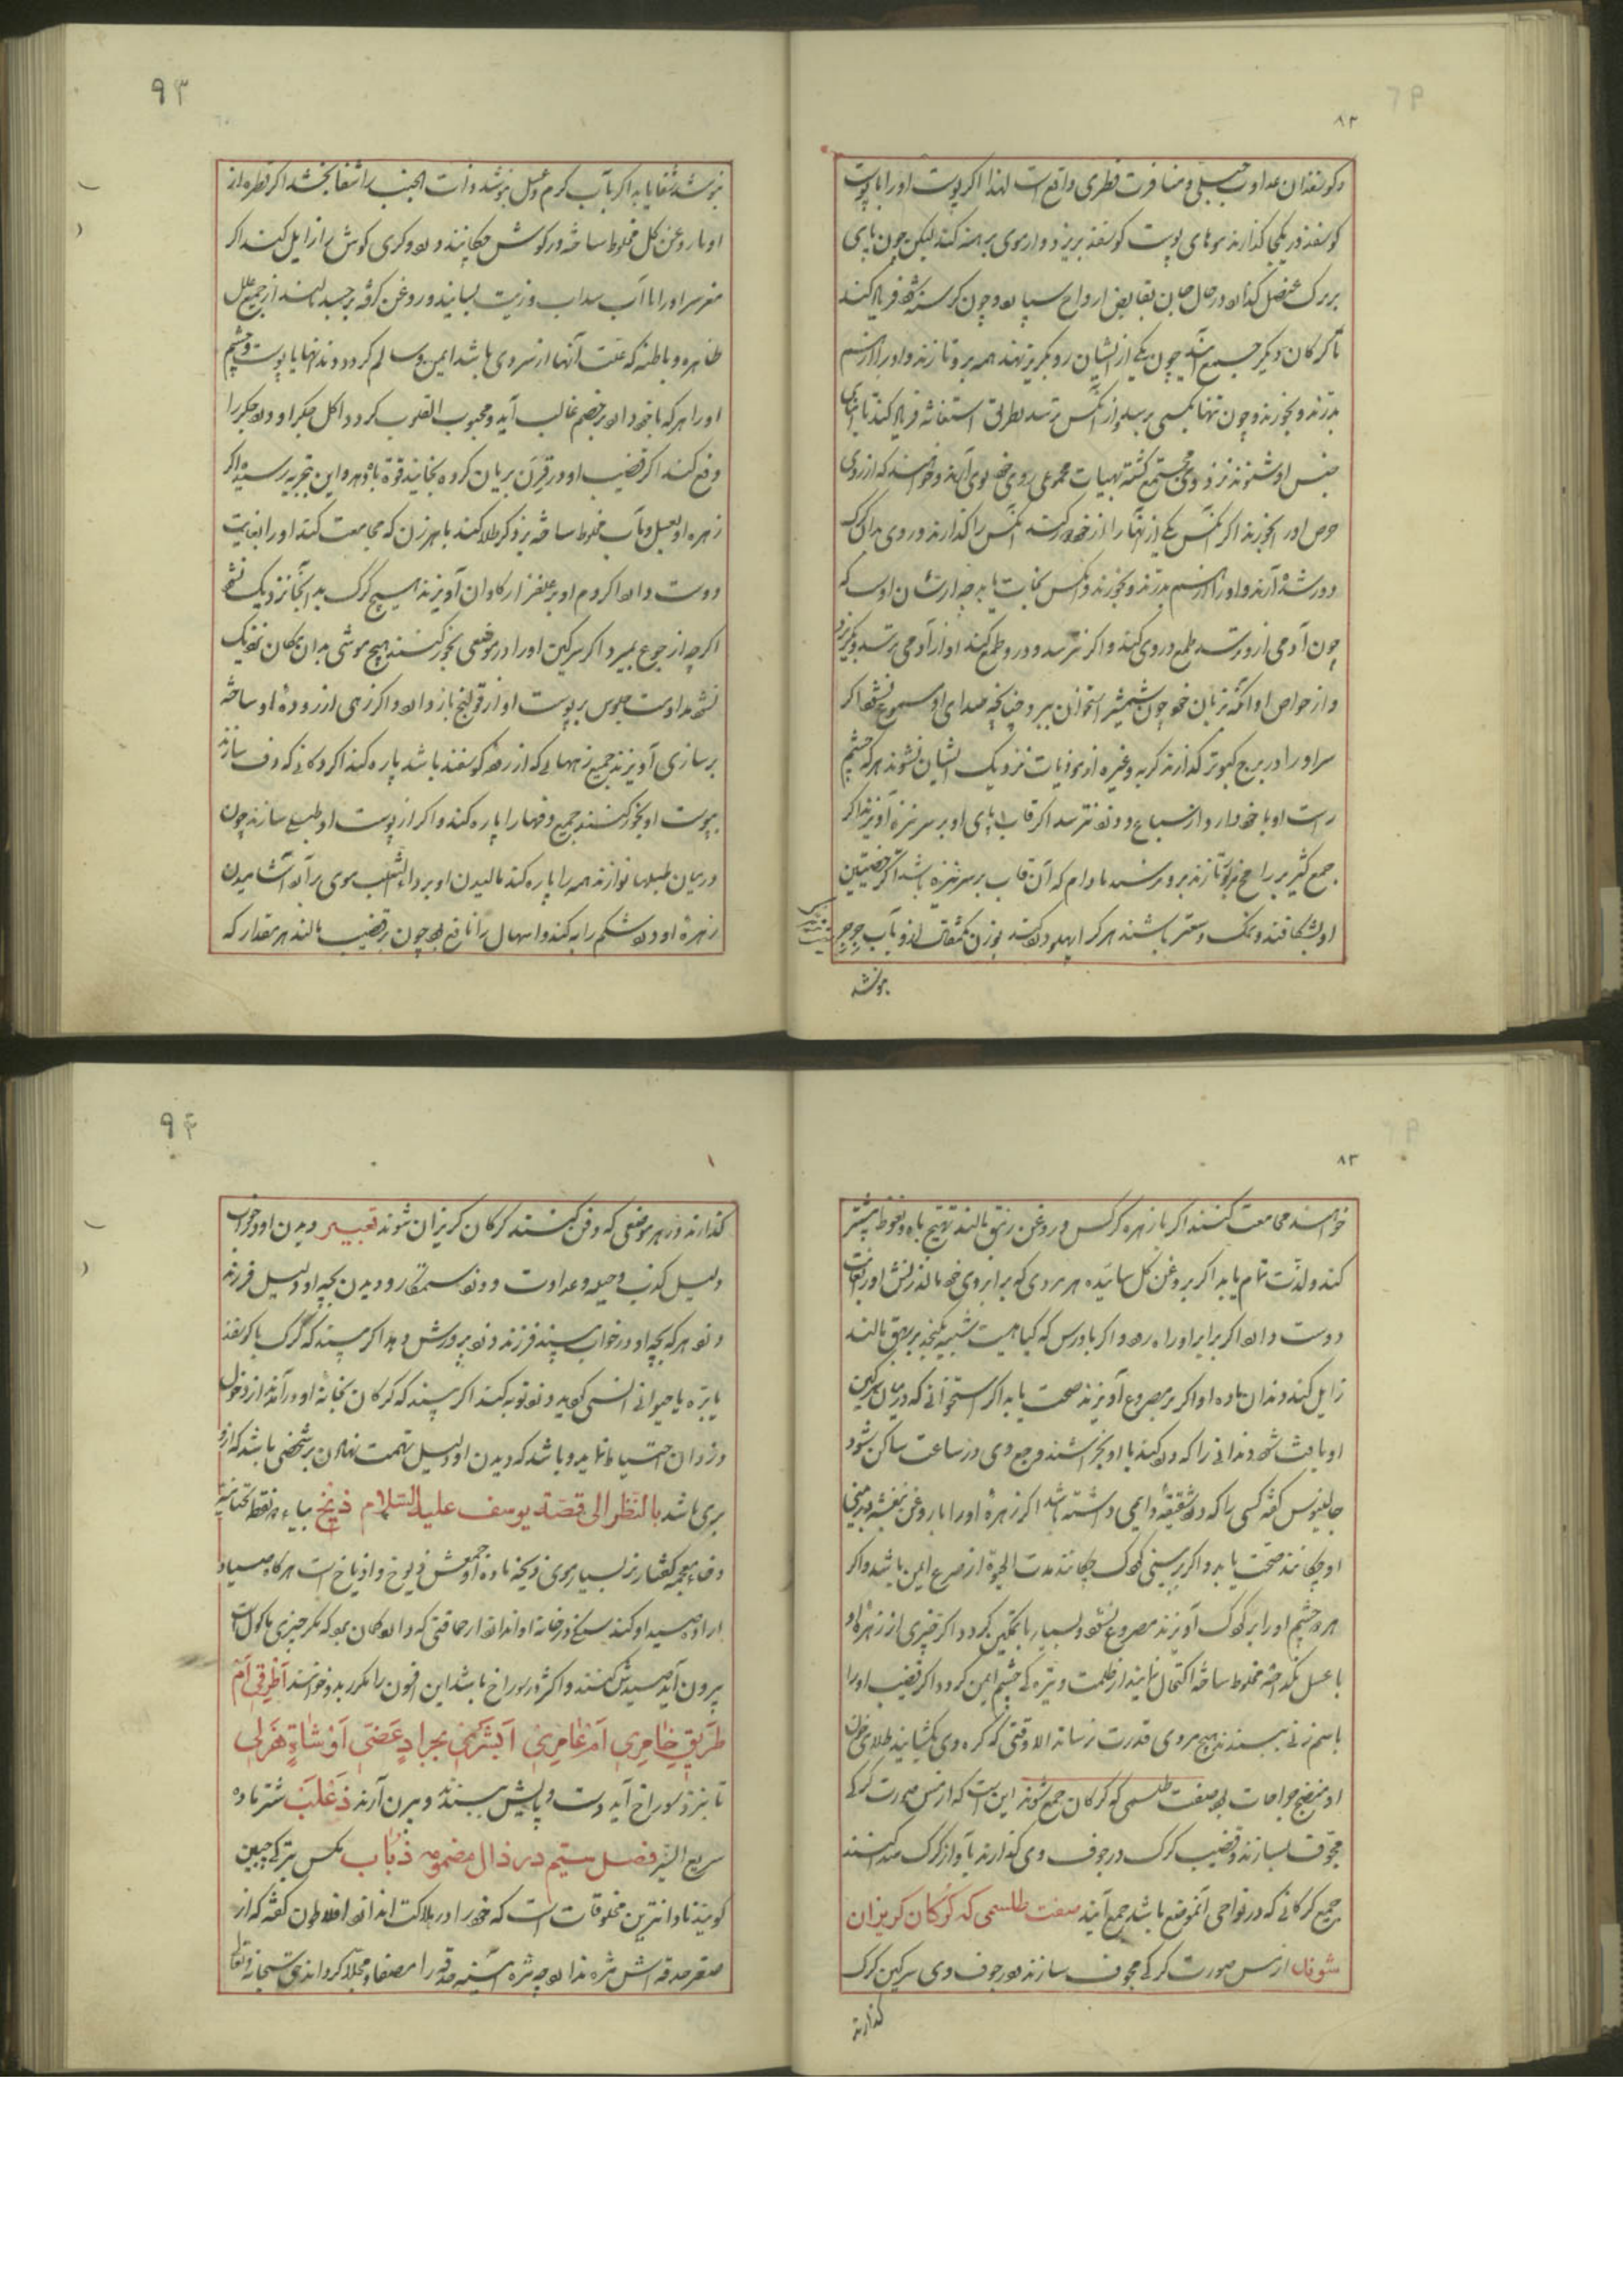 ۸۲
و کوسفندان عداوت جبلی و منافرت فطری واقع است لهذا اکر پوست او را با پوست
کوسفند در یکجا کذارند موهای پوست کوسفند بریزد و از موی برهنه کند لیکن چون پای
بر برک عنصل کذارد در حال جان بقابض ارواح سپارد و چون کرسنه شود فریاد کند
تا کرکان دیکر جمع آیند چون یکی از ایشان رو بکریز نهد همه برو تازند و او را از هم
بدرند و بخورند و چون تنها بکسی برسد و از آنکس بترسد بطریق استغاثه فریاد کند تا ابنای
جنس او شنوند نزد وی مجتمع کشته بهیات مجموعی روی خود بوی آرند و خواهند که از روی
حرص او را بخورند اکر آنکس یکی از آنها را زخم کند آنکس را کذارند و روی بدان کرک
آرند و او را از هم بدرند و بخورند و آنکس نجات یابد
چون آدمی ازو بترسد طمع در وی کند و اکر نترسد و در و طمع کند او از آدمی بترسد و بکریزد
و از خواص او آنکه بزبان خود چون شمشیر استخوان ببرد چنانچه صدای او مسموع نشود اکر
سر او را در برج کبوتر کذارند کربه و غیره از موذیات نزدیک ایشان نشوند هرکه چشم
راست او با خود دارد از سباع و دزد نترسد اکر قاب پای او بر سر نیزه آویزند اکر
جمع کثیر برامح برو تازند برو نرسند مادام که آن قاب بر سر نیزه باشد اکر خصیتین
او بشکافند و نمک و سعتر باشند هرکرا پهلو درد کند بوزن یکمثقال ازو بآب جرجیر
بنوشد
۹۳
بنوشد شفا یابد اکر بآب کرم و عسل بنوشد ذات الجنب را شفا بخشد اکر قطره از
او با روغن کل مخلوط ساخته در کوش چکانند درد و کری کوش را زایل کند اکر
مغز سر او را با آب سداب و زیت بسایند و روغن کرفته بر جسد مالند از جمیع علل
ظاهره و باطنه که علت آنها از سردی باشد ایمن و سالم کردد دندانها با پوست و چشم
او را هرکه با خود دارد بر خصم غالب آید و محبوب القلوب کردد اکل جکر او درد جکر را
دفع کند اکر قضیب او در قرن بریان کرده بخایند قوة باه دهد و این بتجربه رسیده اکر
زهره او بعسل و آب مخلوط ساخته بر ذکر طلا کنند با هر زن که مجامعت کند او را بغایت
دوست دارد اکر دم او بر علفزار کاوان آویزند هیچ کرک بدانجا نزدیک نشود
اکرچه از جوع بمیرد اکر سرکین او را در موضعی بخور کنند هیچ موشی بدان مکان نزدیک
نشود مداومت جلوس بر پوست او از قولنج باز دارد و اکر زهی از روده او ساخته
بر سازی آویزند جمیع زههایی که از روده کوسفند باشد پاره کند اکر دکانی که دف سازند
بپوست او بخور کنند جمیع دفها را پاره کند و اکر از پوست او طبلی سازند چون
در میان طبلها نوازند همه را پاره کند مالیدن او بر داء الثعلب موی برآرد آشامیدن
زهره او درد شکم را به کند و اسهال را نافع بود چون بر قضیب مالند هر مقدار که
۸۳
خواهند مجامعت کنند اکر با زهره کرکس و روغن زنبق مالند تهییج باه و نعوظ بیشتر
کند و لذت تمام یابد اکر بروغن کل ساییده هر مردی که بر ابروی خود مالد زنش او را بغایت
دوست دارد
زایل کند دندان ناب او اکر بر مصروع آویزند صحت یابد اکر استخوانی که در میان سرکین
او یافت شود دندانی را که درد کند با او بخراشند وجع وی در ساعت ساکن شود
جالینوس کفته کسی را که درد شقیقه دایمی داشته باشد اکر زهره او را با روغن بنفشه در بینی
او چکانند صحت یابد و اکر بر بینی کودک چکانند مدت الحیوة از صرع ایمن باشد و اکر
هر دو چشم او را بر کودک آویزند مصروع نشود و بسیار با تمکین کردد اکر قدری از زهره او
با عسل بکداخته مخلوط ساخته اکتحال نمایند از ظلمت و تیرکی چشم ایمن کردد و اکر قضیب او را
باسم زنی ببندند هیچ مرد بر وی قدرت نرساند الا وقتی که کره وی بکشایند طلای خون
او منضج جراحات بود صفت طلسمی که کرکان جمع شوند این است که از مس صورت کرکی
مجوف بسازند و قضیب کرک در جوف وی کذارند بآواز کرک صدا کنند
جمیع کرکانی که در نواحی آنموضع باشد جمع آیند صفت طلسمی که کرکان کریزان
شوند از مس صورت کرکی مجوف سازند و در جوف وی سرکین کرک
کذارند
۹۴
کذارند و در هر موضعی که دفن کنند کرکان کریزان شوند تعبیر دیدن او در خواب
دلیل کذب و حیله و عداوت و دزد ستمکار و دیدن بچه او دلیل فرزند
دزد هرکه بچه او در خواب بیند فرزند دزد پرورش دهد اکر بیند که کرک با کوسفند
یا بره یا حیوانی انسی کردید دزد توبه کند اکر بیند که کرکان بخانه او درآمدند از دخول
دزدان احتیاط نماید و باشد که دیدن او دلیل تهمت نهادن بر شخصی باشد که ازو
بری باشد بالنظر الی قصة یوسف علیه السلام ذیخ بیاء دو نقطه تحتانیه
و خاء معجمه کفتار نر بسیار موی ذیخه ماده او جمعش ذیوخ و اذیاخ است هرکاه صیاد
اراده صید او کند سنکی در خانه او اندازد از حماقتی که دارد کمان برد که مکر چیزی ماکول است
بیرون آید صیدش کنند و اکثر در سوراخ باشد این افسون را مکرر بدو خوانند أطرقی أم
طریق خامری أم عامر أبشری بجراد عضی أو شاة هزلی
تا نزد سوراخ آید دست و پایش ببندند و بیرون آرند ذعلب شتر ماده
سریع السیر فصل ستیم در ذال مضمومه ذباب مکس بترکی چبین
کویند نادانترین مخلوقات است که خود را در هلاکت اندازد افلاطون کفته که از
صغر حدقه اش مژه ندارد چه مژه آیینه حدقه را مصفا و مجلا کرداند حق سبحانه و تعالی